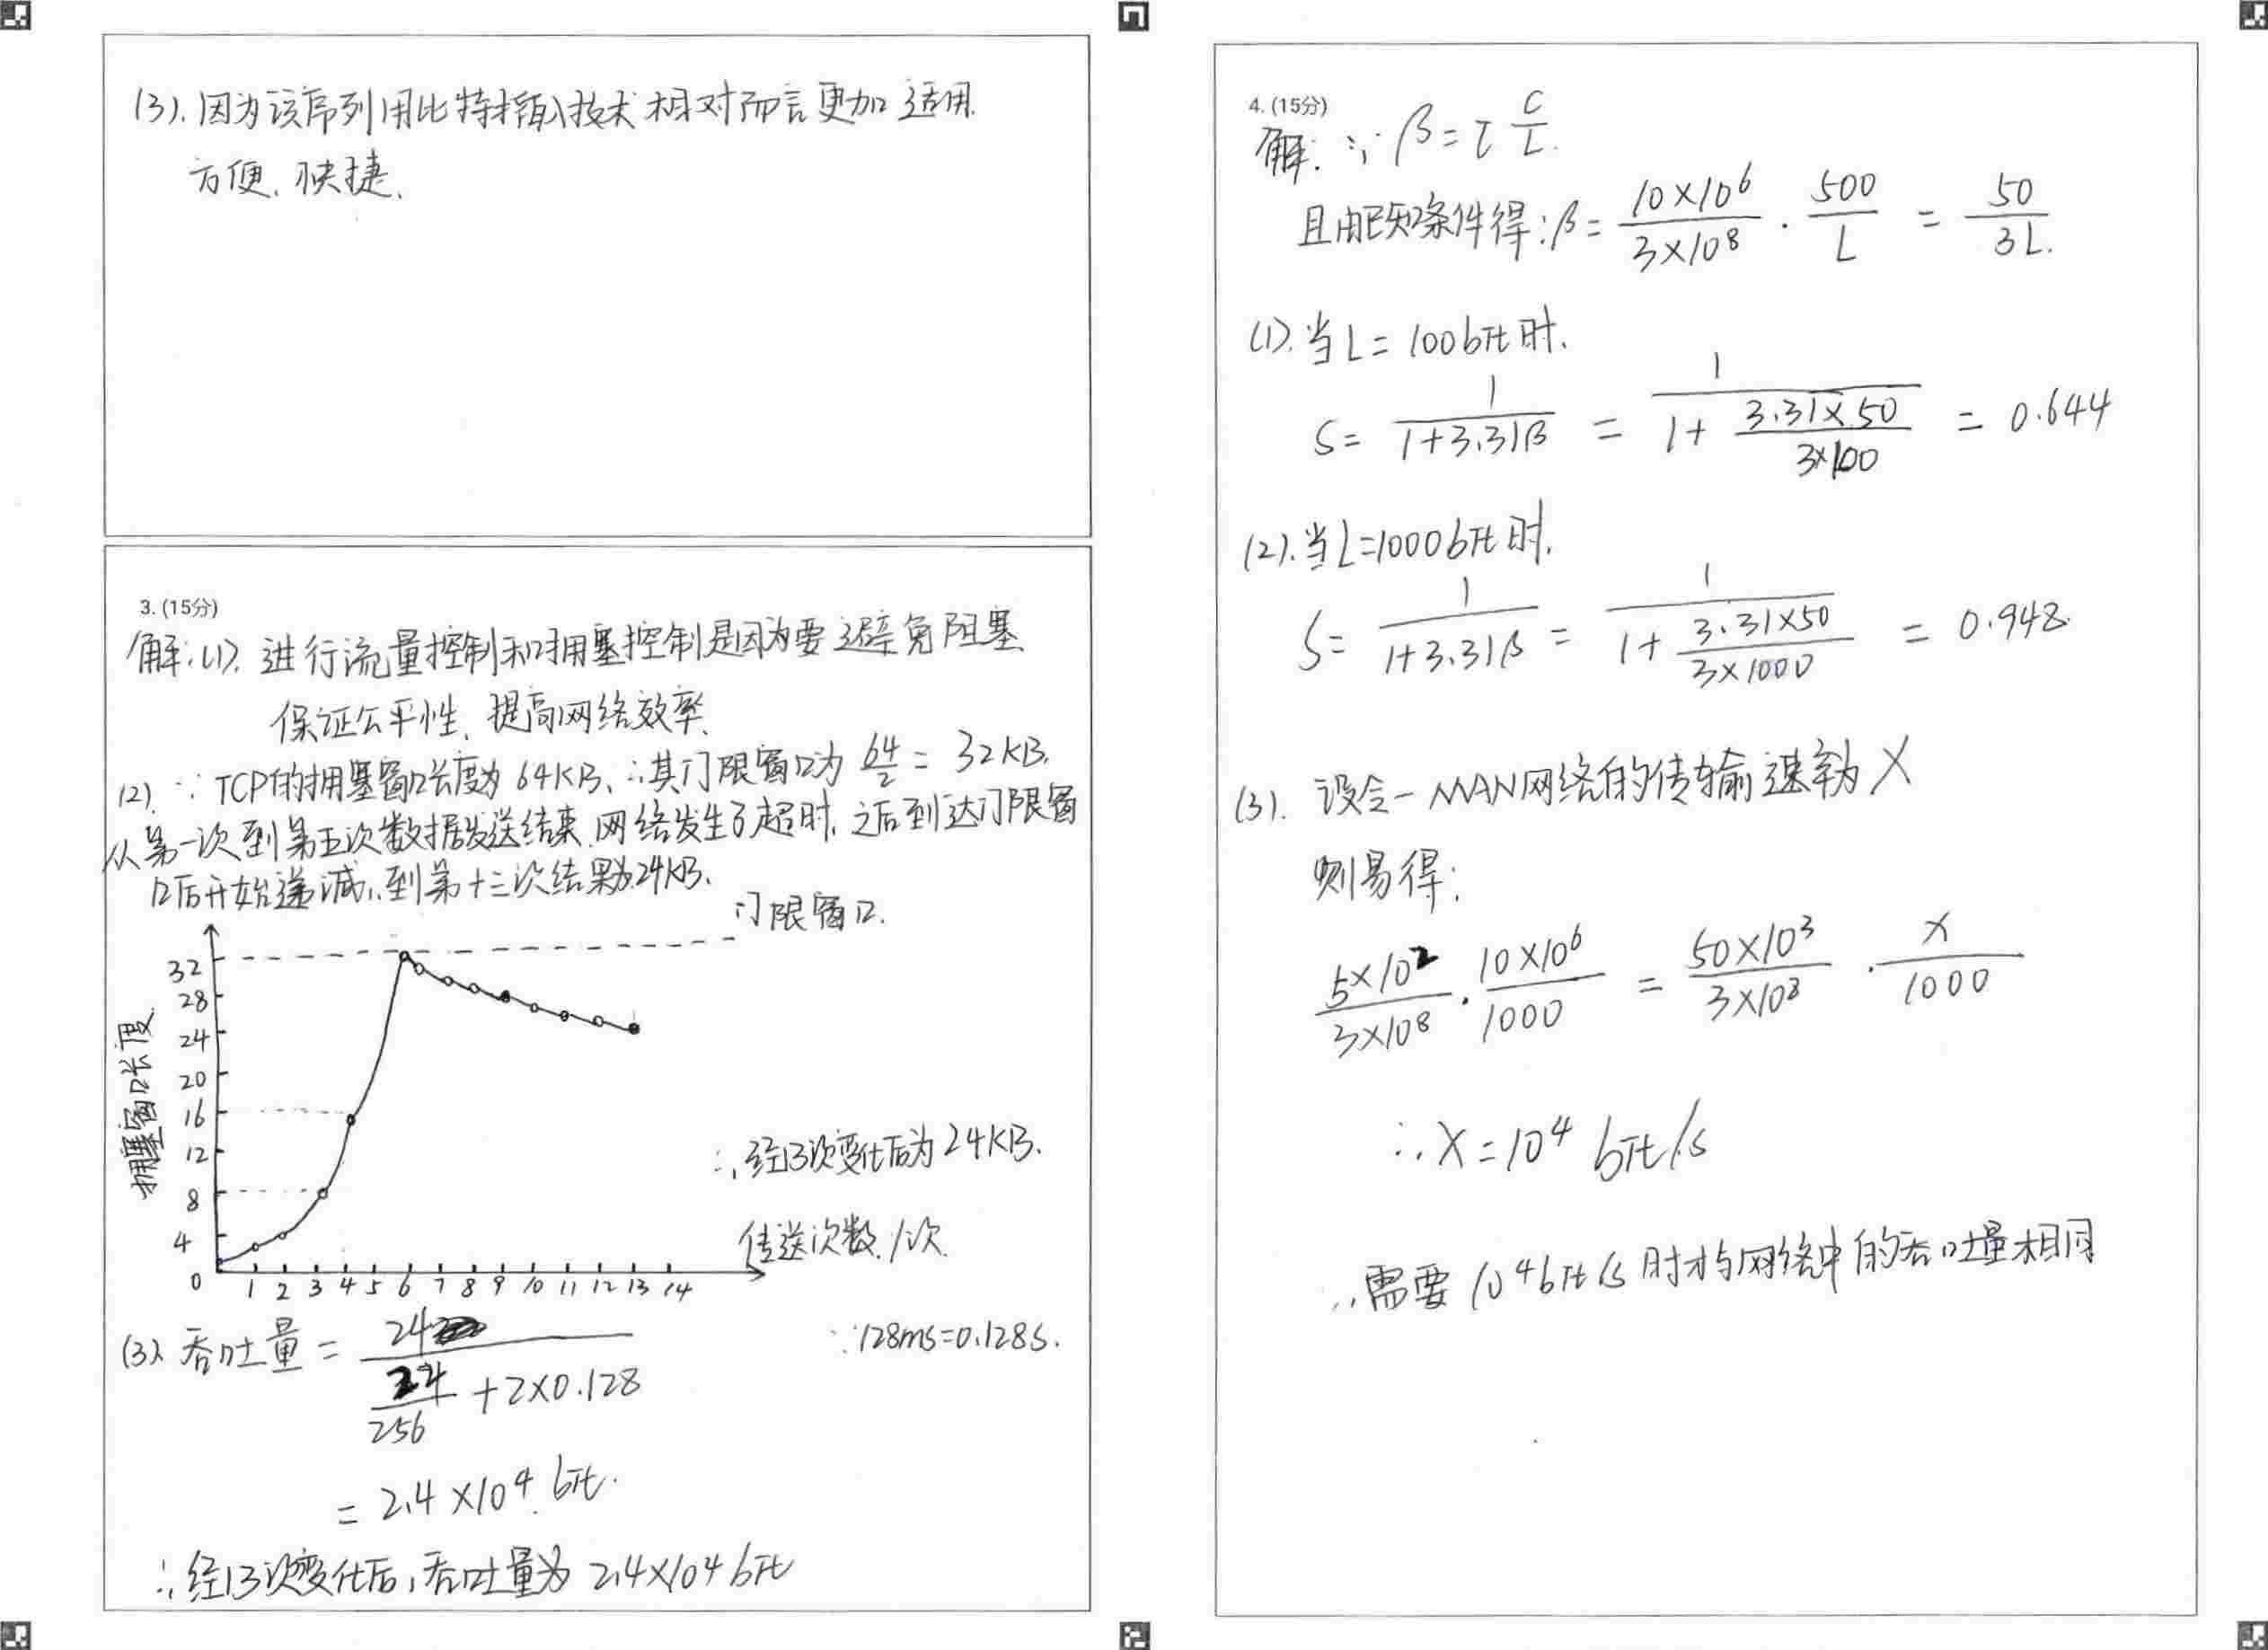 (3). 因为该序列用比特插入技术相对而言更加适用.
方便、快捷.
3. (15分)
解:(1). 进行流量控制和拥塞控制是因为要避免阻塞
保证公平性、提高网络效率.
(2) ∵ TCP的拥塞窗口长度为 64KB, ∴其门限窗口为 64/2 = 32KB.
从第一次到第五次数据发送结束,网络发生了超时,之后到达门限窗
口后开始递减,到第十三次结果为24KB.
门限窗口.
拥塞窗口长度
32
28
24
20
16
12
8
4
0
1 2 3 4 5 6 7 8 9 10 11 12 13 14
∴经13次变化后为24KB.
传送次数/次
(3) 吞吐量 = 24 / (24/256 + 2×0.128)
∵128ms=0.128s.
= 2.4×10⁴ bit.
∴经13次变化后,吞吐量为 2.4×10⁴ bit
4. (15分)
解: ∵ β = τ C/L.
且由已知条件得: β = (10×10⁶)/(3×10⁸) · 500/L = 50/3L.
(1). 当L = 100bit时.
S = 1/(1+3.31β) = 1/(1 + (3.31×50)/(3×100)) = 0.644
(2). 当L=1000bit时.
S = 1/(1+3.31β) = 1/(1 + (3.31×50)/(3×1000)) = 0.948.
(3). 设令一MAN网络的传输速率为X
则易得:
(5×10²)/(3×10⁸) · (10×10⁶)/1000 = (50×10³)/(3×10⁸) · X/1000
∴ X = 10⁴ bit/s
∴需要10⁴bit/s时才与网络中的吞吐量相同